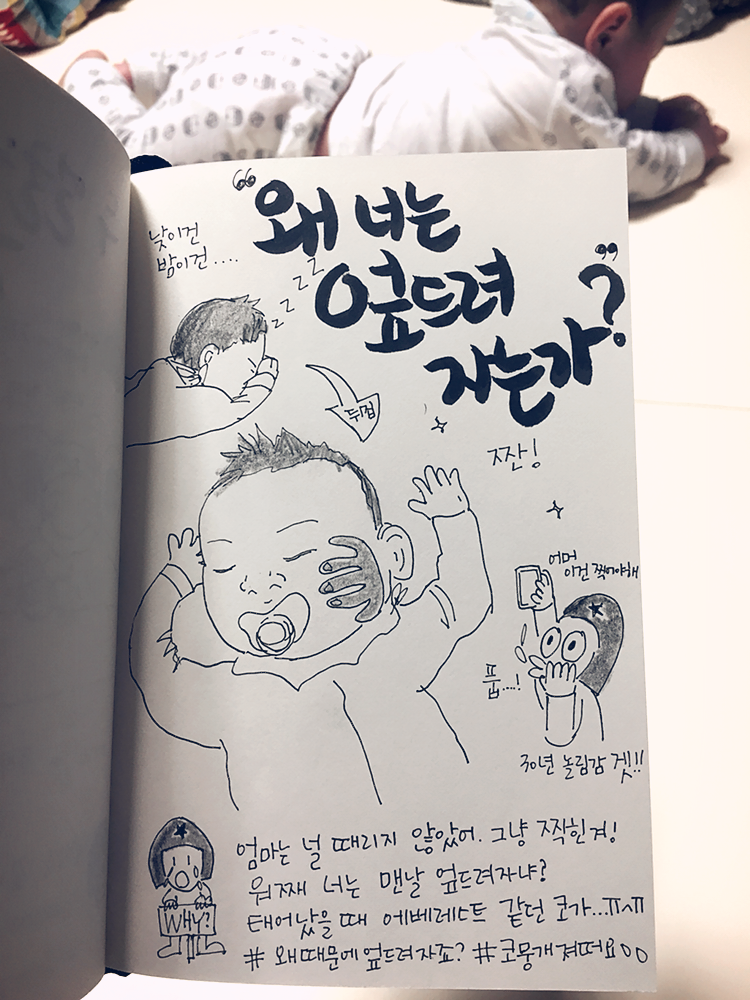 낮이건
밤이건....
"왜 너는
엎드려
자는가?"
z z z z z
뒤집
짠!
어머
이건 찍어야해
풉....!
30년 놀림감 겟!!
엄마는 널 때리지 않았어. 그냥 찍힌겨!
워째 너는 맨날 엎드려자냐?
태어났을때 에베레스트 같던 코가...ㅠㅅㅠ
# 왜때문에 엎드려자죠? #코뭉개져떠요ㅇㅇ
WHY?